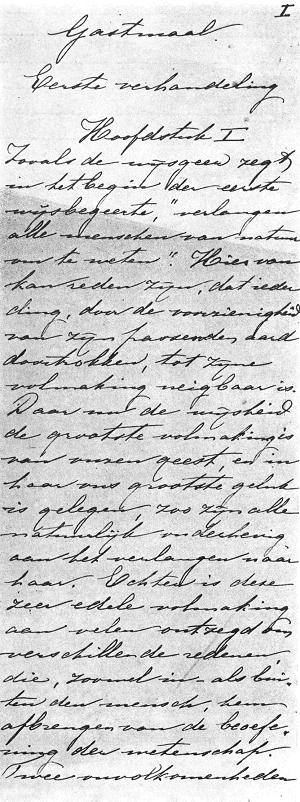 I
Gastmaal.
Eerste verhandeling
Hoofdstuk I
Zooals de wijsgeer zegt
in het begin der eerste
wijsbegeerte, "verlangen
alle menschen van nature
om te weten". Hiervan
kan reden zijn, dat ieder
ding, door de voorzienigheid
van zijn passenden aard
doortrokken, tot zijne
volmaking neigbaar is.
Daar nu de wijsheid
de grootste volmaking is
van onzen geest, en in
haar ons grootste geluk
is gelegen, zoo zijn alle
natuurlijk onderhevig
aan het verlangen naar
haar. Echter is deze
zeer edele volmaking
aan velen ontzegd om
verschillende redenen,
die, zoowel in- als bui-
ten den mensch, hem
afbrengen van de beoefe-
ning der wetenschap.
Twee onvolkomenheden